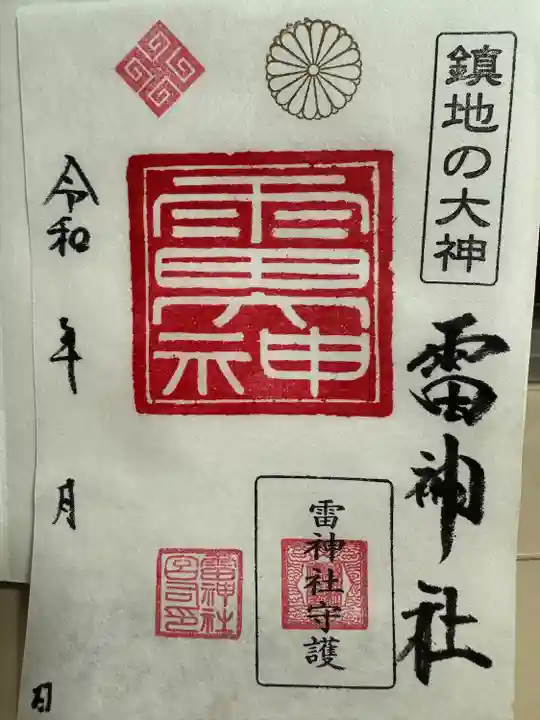 鎮地の大神
雷神社
雷神社守護
雷神社
宮司印
令和 年 月 日